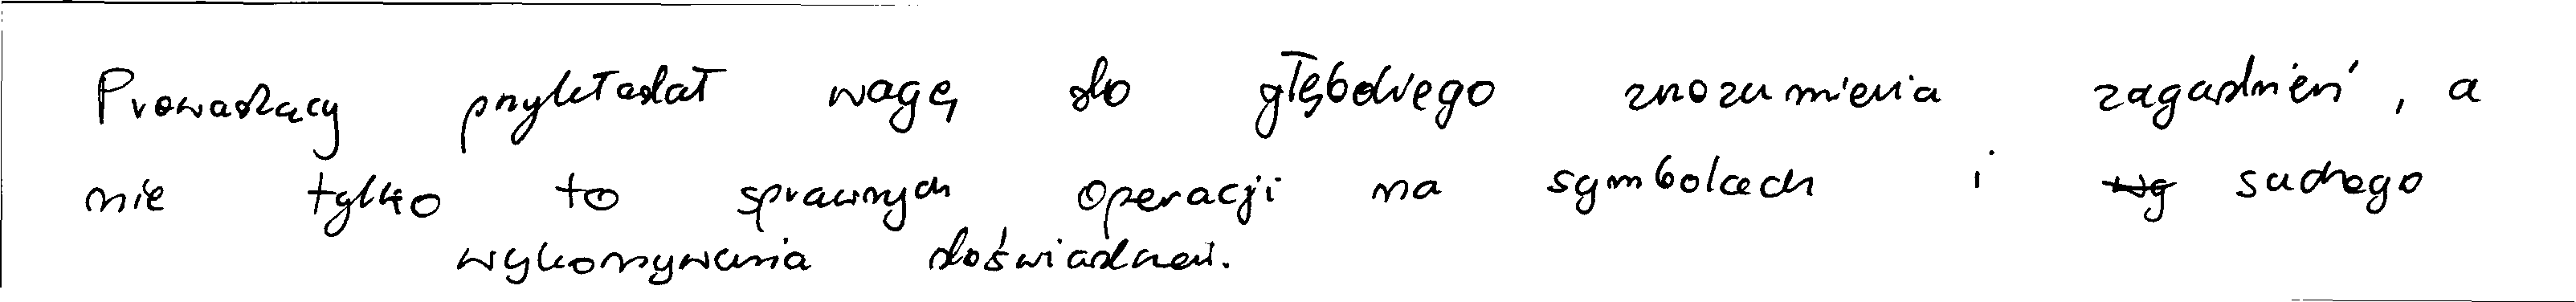 Prowadzący przykładał wagę do głębokiego zrozumienia zagadnień, a
nie tylko to sprawnych operacji na symbolach i suchego
wykonywania doświadczeń.